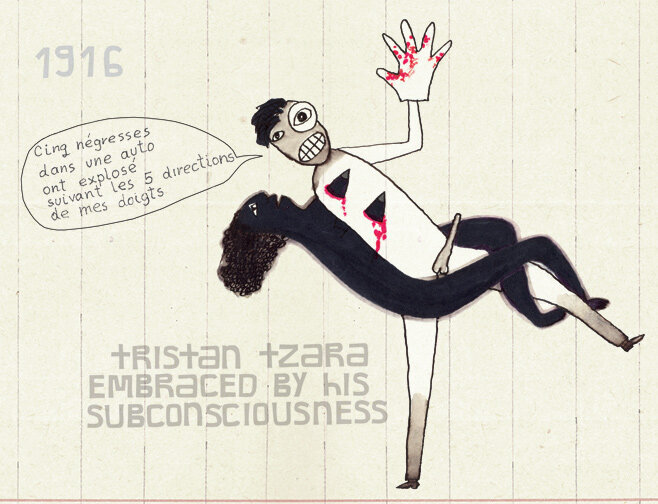 1916
Cinq négresses
dans une auto
ont explosé
suivant les 5 directions
de mes doigts
tristan tzara
embraced by his
subconsciousness